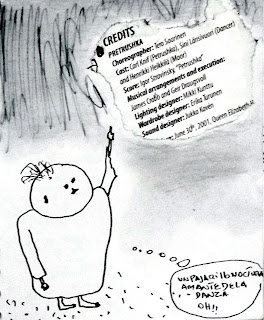 CREDITS
PRETRUSHKA
Choreographer: Tero Saarinen
Cast: Carl Knif (Petrushka), Sini Länsivuori (Dancer)
and Henrikki Heikkilä (Moor)
Score: Igor Stravinsky, "Petrushka"
Musical arrangements and execution:
James Crabb and Geir Draugsvoll
Lighting designer: Mikki Kunttu
Wardrobe designer: Erika Turunen
Sound designer: Jukka Kaven
June 30th, 2001, Queen Elizabeth H
UN PAJARILLO NOCTURNO
AMANTE DE LA
DANZA
OH!!